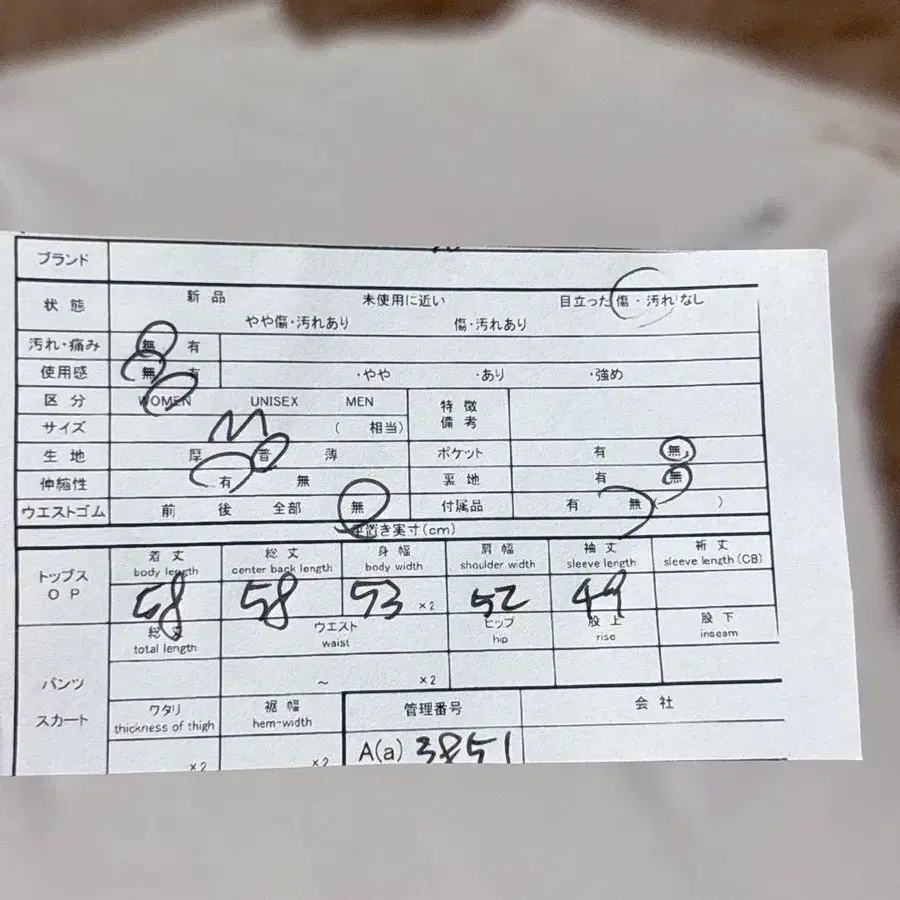 ブランド
状 態 新 品 未使用に近い 目立った傷・汚れなし
やや傷・汚れあり 傷・汚れあり
汚れ・痛み 無 有
使用感 無 有 ・やや ・あり ・強め
区 分 WOMEN UNISEX MEN 特 徴
サイズ M ( 相当) 備 考
生 地 厚 普 薄 ポケット 有 無
伸縮性 有 無 裏 地 有 無
ウエストゴム 前 後 全部 無 付属品 有 無 ( )
平置き実寸(cm)
着 丈 総 丈 身 幅 肩 幅 袖 丈 裄 丈
body length center back length body width shoulder width sleeve length sleeve length (CB)
トップス
O P 58 58 53 ×2 52 49
総 丈 ウエスト ヒップ 股 上 股 下
total length waist hip rise inseam
パンツ ～ ×2
スカート ワタリ 裾 幅 管理番号 会 社
thickness of thigh hem-width
×2 ×2 A(a) 3851